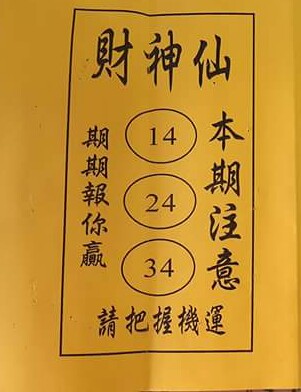 財神仙
本期注意
14
24
34
期期報你贏
請把握機運